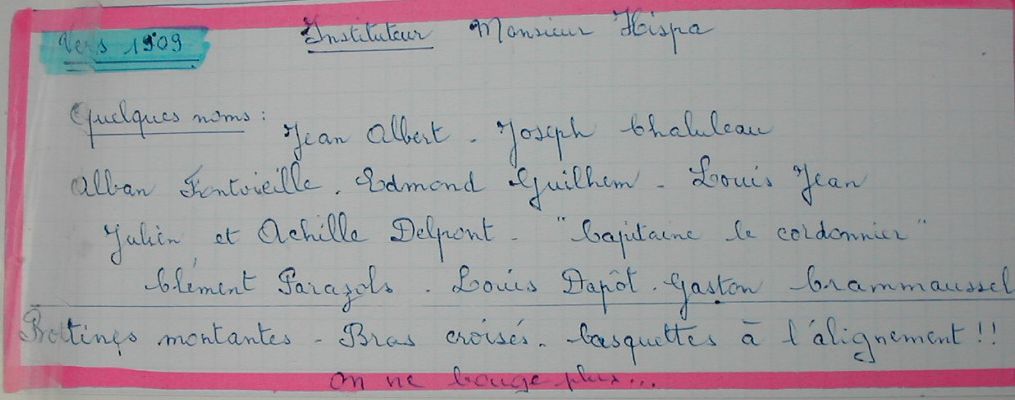 Vers 1909 Instituteur Monsieur Hispa
Quelques noms :
Jean Albert - Joseph Chaluleau
Alban Fontvieille. Edmond Guilhem - Louis Jean
Julien et Achille Delpont - "Capitaine le cordonnier"
Clément Parazols. Louis Dapôt. Gaston Crammaussel
Bottines montantes - Bras croisés. Casquettes à l'alignement !!
on ne bouge plus...